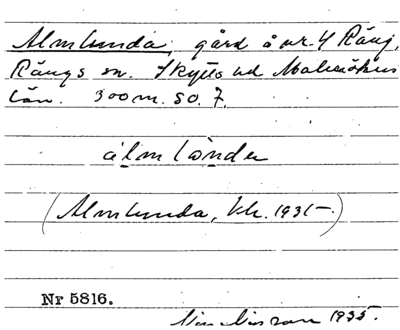 Almlunda, gård å nr. 4 Räng,
Rängs sn. Skytts hd Malmöhus
län. 300 m. SO. 7.
álmlònda
(Almlunda, kk. 1931–)
Nr 5816.
1935.